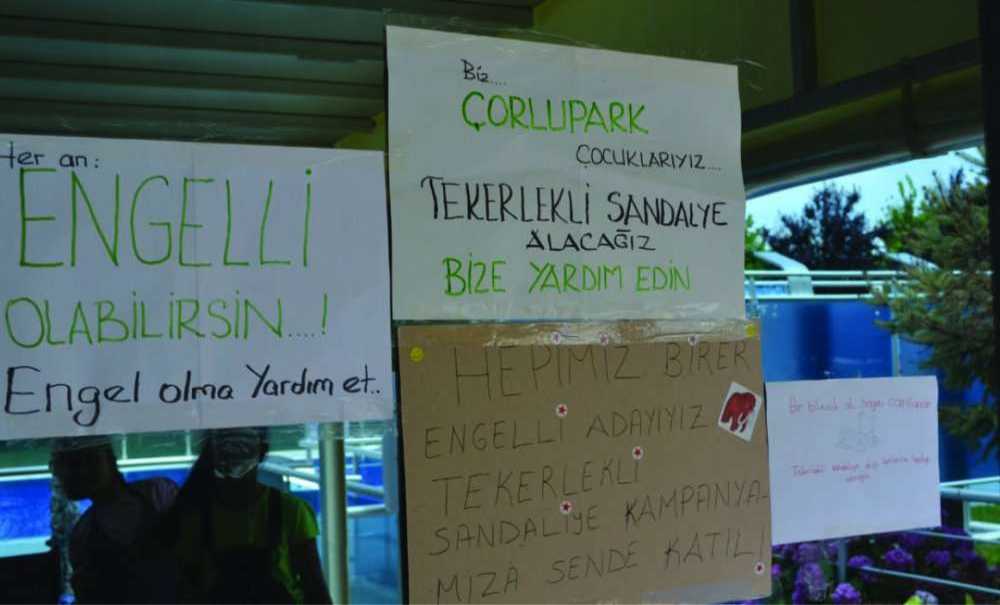 Her an:
ENGELLİ
OLABİLİRSİN....!
Engel olma Yardım et..
Biz....
ÇORLUPARK
ÇOCUKLARIYIZ....
TEKERLEKLİ SANDALYE
ALACAĞIZ
BİZE YARDIM EDİN
HEPİMİZ BİRER
ENGELLİ ADAYIYIZ
TEKERLEKLİ
SANDALİYE KAMPANYA-
MIZA SENDE KATIL!
Bir bilezik al